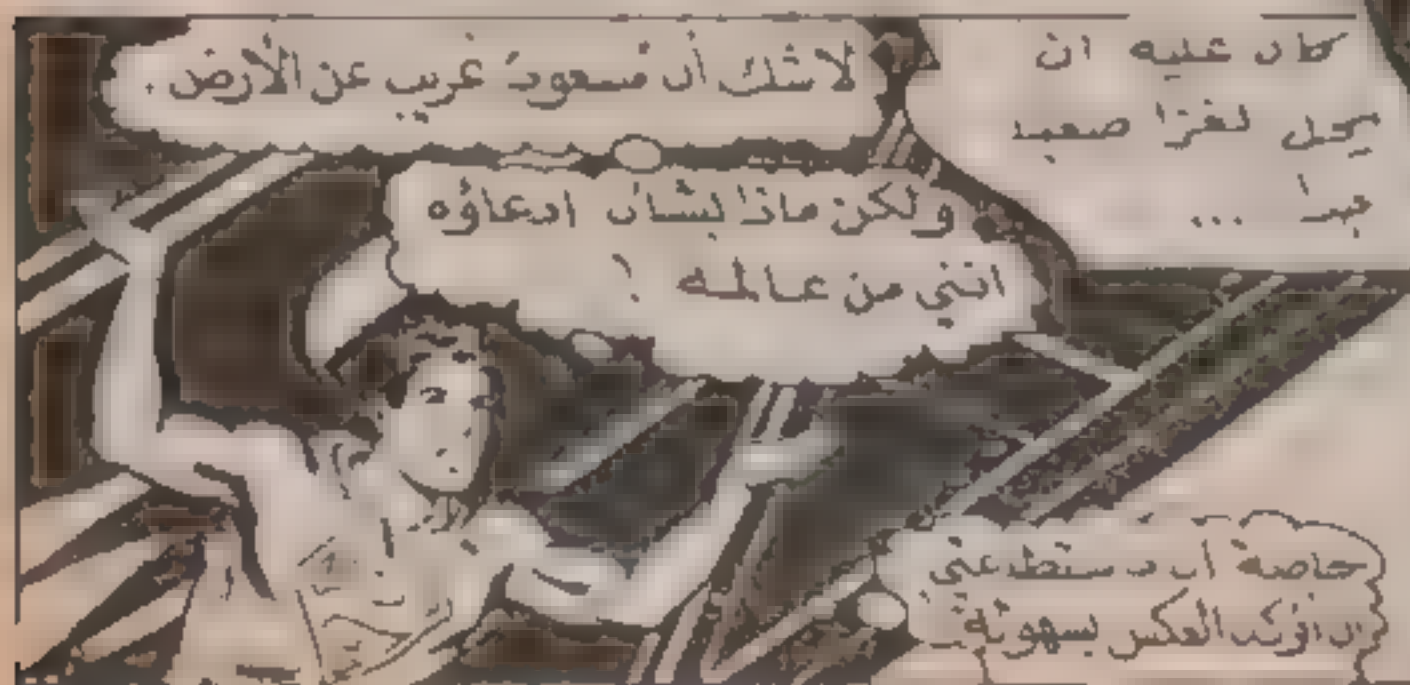 كان عليه ان
يحل لغزا صعبا
جدا ...
لا شك أن مسعود غريب عن الأرض .
ولكن ماذا بشأن ادعاؤه
انني من عالمه ؟
خاصة
اؤكد العكس بسهولة